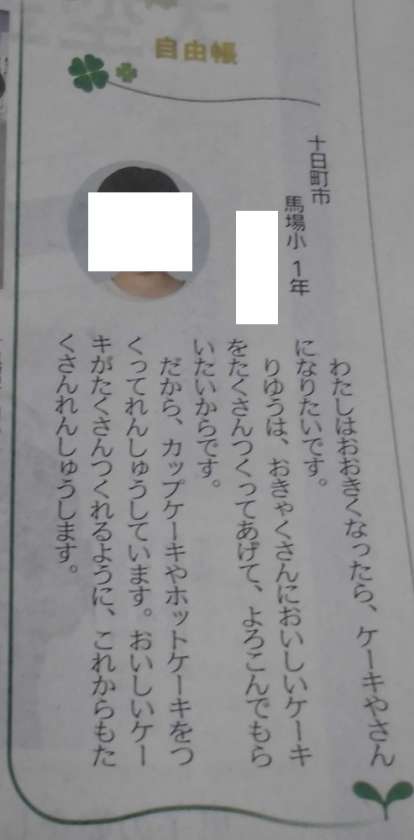 自由帳
十日町市
馬場小 1年
わたしはおおきくなったら、ケーキやさん
になりたいです。
りゆうは、おきゃくさんにおいしいケーキ
をたくさんつくってあげて、よろこんでもら
いたいからです。
だから、カップケーキやホットケーキをつ
くってれんしゅうしています。おいしいケー
キがたくさんつくれるように、これからもた
くさんれんしゅうします。